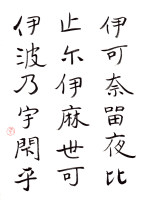 伊可奈留夜比
止尓伊麻世可
伊波乃宇閇乎